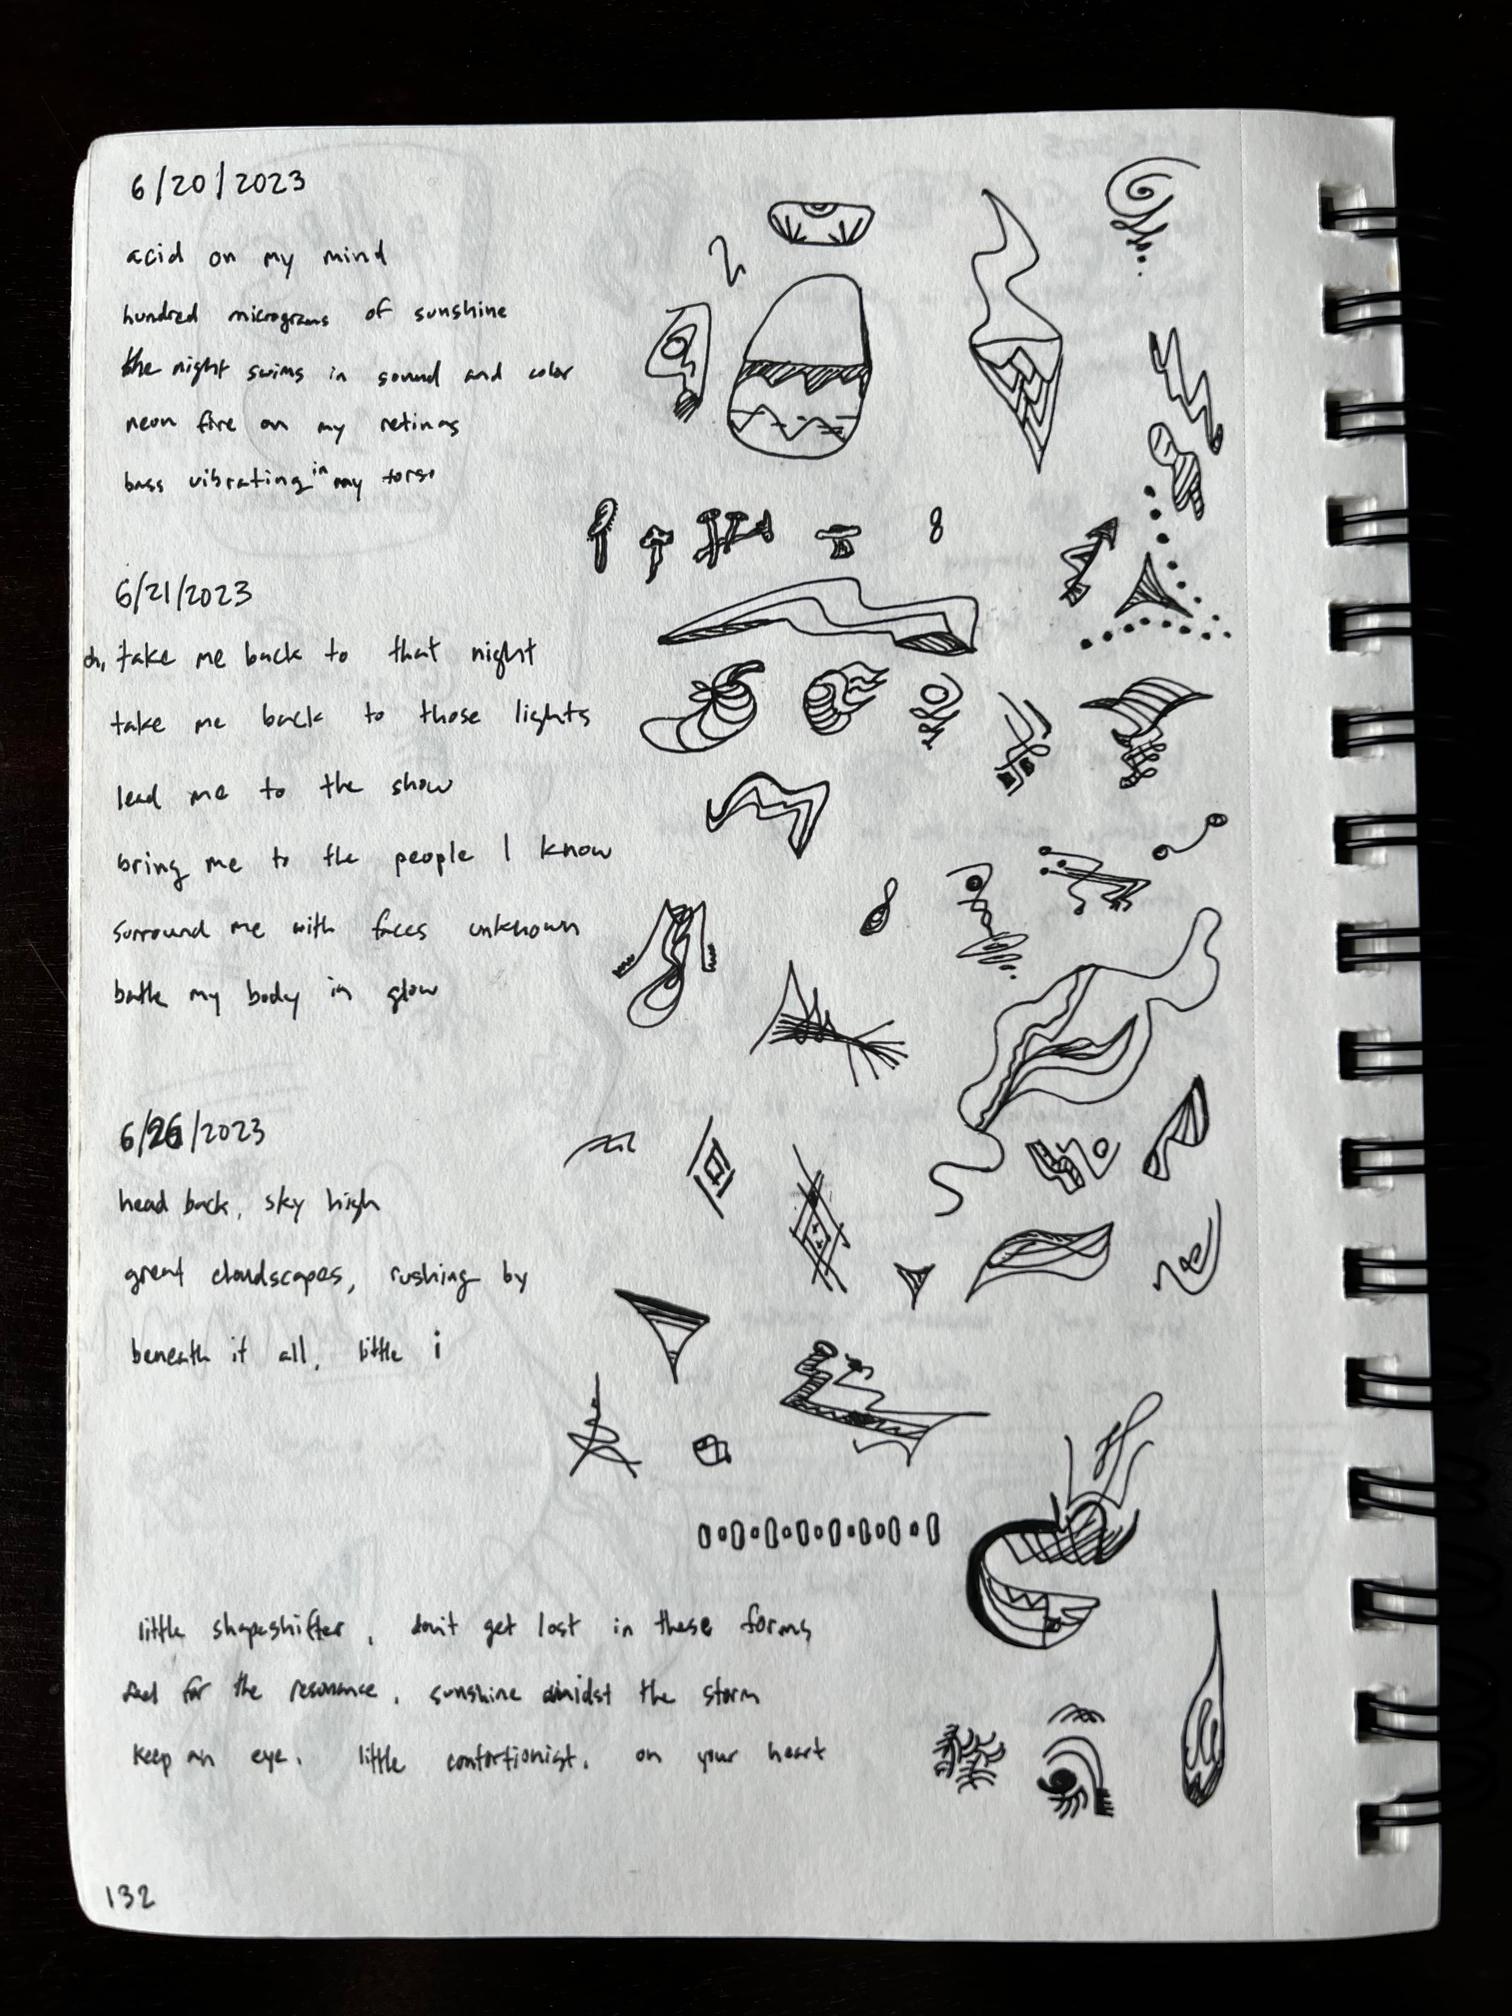 6/20/2023
acid on my mind
hundred micrograms of sunshine
the night swims in sound and color
neon fire on my retinas
bass vibrating in my torso
6/21/2023
oh, take me back to that night
take me back to those lights
lead me to the show
bring me to the people I know
surround me with faces unknown
bathe my body in glow
6/26/2023
head back, sky high
great cloudscapes, rushing by
beneath it all, little i
little shapeshifter, don't get lost in these forms
feel for the resonance, sunshine amidst the storm
keep an eye, little contortionist, on your heart
132